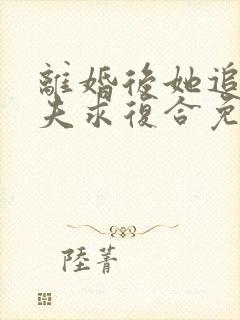 離婚後她追
夫求復合免
陸菁